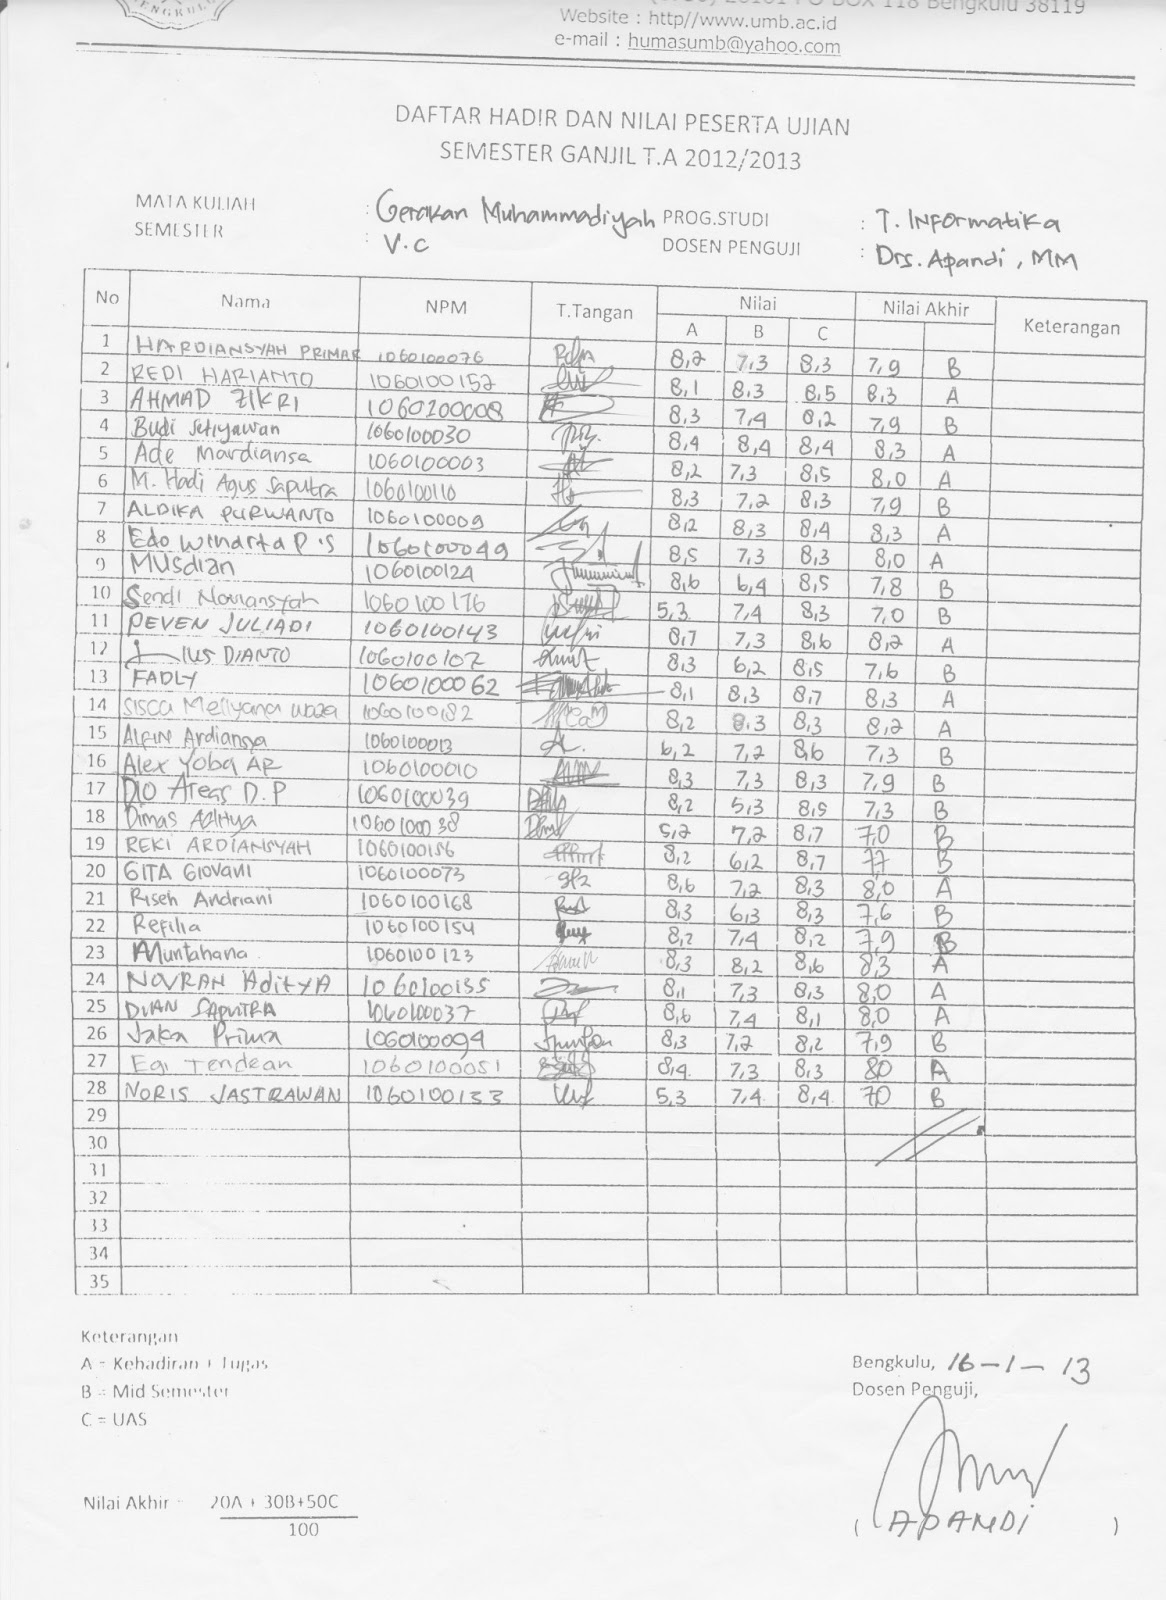 BENGKULU
PO BOX 118 Bengkulu 38119
Website : http//www.umb.ac.id
e-mail : humasumb@yahoo.com
DAFTAR HADIR DAN NILAI PESERTA UJIAN
SEMESTER GANJIL T.A 2012/2013
MATA KULIAH : Gerakan Muhammadiyah PROG.STUDI : T. Informatika
SEMESTER : V.C DOSEN PENGUJI : Drs. Apandi, MM
No Nama NPM T.Tangan Nilai Nilai Akhir Keterangan
A B C
1 HARDIANSYAH PRIMAR 1060100076 8,2 7,3 8,3 7,9 B
2 REDI HARIANTO 1060100152 8,1 8,3 8,5 8,3 A
3 AHMAD ZIKRI 1060100008 8,3 7,4 8,2 7,9 B
4 Budi Setiyawan 1060100030 8,4 8,4 8,4 8,3 A
5 Ade Mardiansa 1060100003 8,2 7,3 8,5 8,0 A
6 M. Hadi Agus Saputra 1060100110 8,3 7,2 8,3 7,9 B
7 ALDIKA PURWANTO 1060100009 8,2 8,3 8,4 8,3 A
8 Edo Winarta P.S 1060100049 8,5 7,3 8,3 8,0 A
9 MUSdian 1060100124 8,6 6,4 8,5 7,8 B
10 Sendi Noviansyah 1060100176 5,3 7,4 8,3 7,0 B
11 PEVEN JULIADI 1060100143 8,7 7,3 8,6 8,2 A
12 DIANTO 1060100107 8,3 6,2 8,5 7,6 B
13 FADLY 1060100062 8,1 8,3 8,7 8,3 A
14 Sisca Meliyana 1060100182 8,2 8,3 8,3 8,2 A
15 Alfin Ardiansya 1060100013 6,2 7,2 8,6 7,3 B
16 Alex Yoba AR 1060100010 8,3 7,3 8,3 7,9 B
17 DIO Areas D.P 1060100039 8,2 5,3 8,5 7,3 B
18 Dimas Aditya 1060100038 5,2 7,2 8,7 70 B
19 REKI ARDIANSYAH 1060100156 8,2 6,2 8,7 77 B
20 GITA GIOVANI 1060100073 8,6 7,2 8,3 8,0 A
21 Riseh Andriani 1060100168 8,3 6,3 8,3 7,6 B
22 Refilia 1060100154 8,2 7,4 8,2 7,9 B
23 Muntahana 1060100123 8,3 8,2 8,6 8,3 A
24 NOVRAN AditYA 1060100135 8,1 7,3 8,3 8,0 A
25 DIAN SAPUTRA 1060100037 8,6 7,4 8,1 8,0 A
26 Jaka Prima 1060100094 8,3 7,2 8,2 7,9 B
27 Egi Tendean 1060100051 8,4 7,3 8,3 80 A
28 NORIS JASTRAWAN 1060100133 5,3 7,4 8,4 70 B
29
30
31
32
33
34
35
Keterangan
A = Kehadiran + Tugas
B = Mid Semester
C = UAS
Bengkulu, 16-1-13
Dosen Penguji,
Nilai Akhir = 20A + 30B+50C
100
( APANDI )